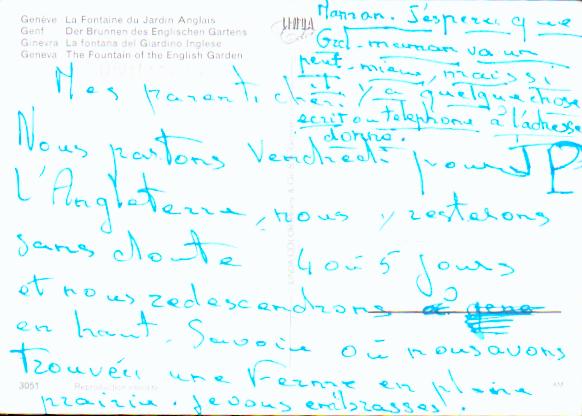 Genève La Fontaine du Jardin Anglais
Genf Der Brunnen des Englischen Gartens
Ginevra La fontana del Giardino Inglese
Geneva The Fountain of the English Garden
Maman. J'espere que
Grd-maman va un
peut-mieux, mais si
il y a quelque chose
ecrit ou telephone à l'adresse
donné.
Mes parents chéri
Nous partons Vendredi pour
JP
L'Angleterre, nous y resterons
sans doute 4 où 5 jours
et nous redescendrons
en haut. Savoie où nous avons
trouvéu une Ferme en pleine
prairie. Je vous embrasses.
3051